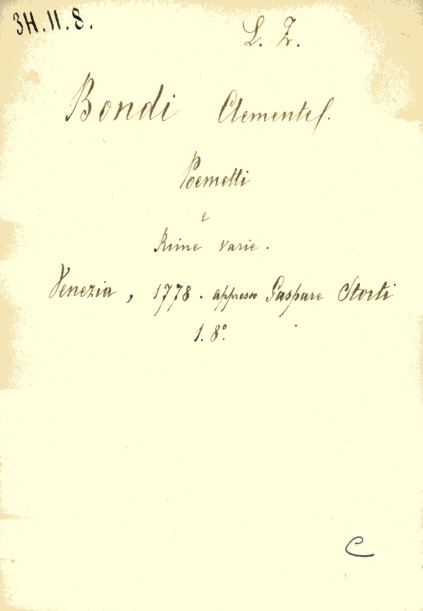 3H.11.8.
L. Z.
Bondi Clemente.
Poemetti
e
Rime varie.
Venezia, 1778. appresso Gaspare Storti
1. 8°.
C